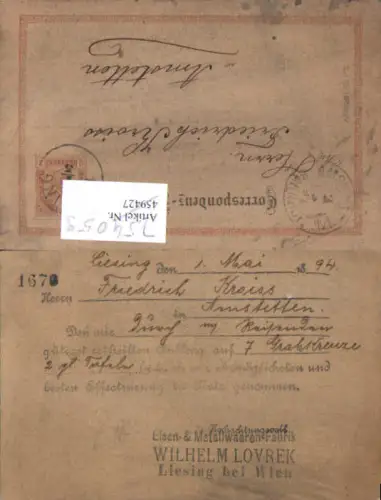 Amstetten
Friedrich Kroiss
Herrn
Correspondenz-
Artikel Nr.
459427
754059
1670
Liesing den 1. Mai 1894
Herrn Friedrich Kroiss
in Amstetten.
Den mir durch m/ Reisenden
gütigst ertheilten Auftrag auf 7 Grabkreuze
2 gl Tafeln
besten Effectuierung genommen.
Hochachtungsvoll
Eisen- & Metallwaaren-Fabrik
WILHELM LOVREK
Liesing bei Wien